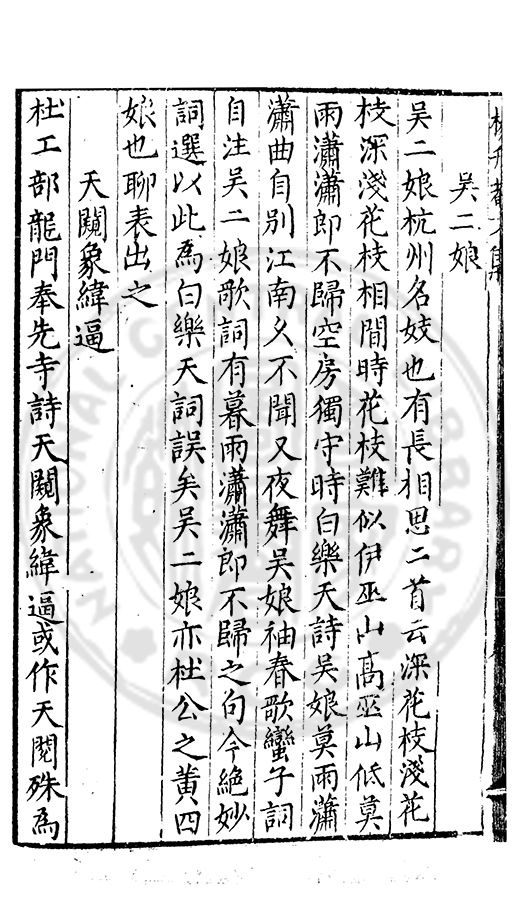 吳二娘
吳二娘杭州名妓也有長相思二首云深花枝淺花
枝深淺花枝相間時花枝難似伊巫山高巫山低莫
雨瀟瀟郎不歸空房獨守時白樂天詩吳娘莫雨瀟
瀟曲自別江南久不聞又夜舞吳娘袖春歌蠻子詞
自注吳二娘歌詞有暮雨瀟瀟郎不歸之句今絕妙
詞選以此為白樂天詞誤矣吳二娘亦杜公之黃四
娘也聊表出之
天闕象緯逼
杜工部龍門奉先寺詩天闕象緯逼或作天閱殊為